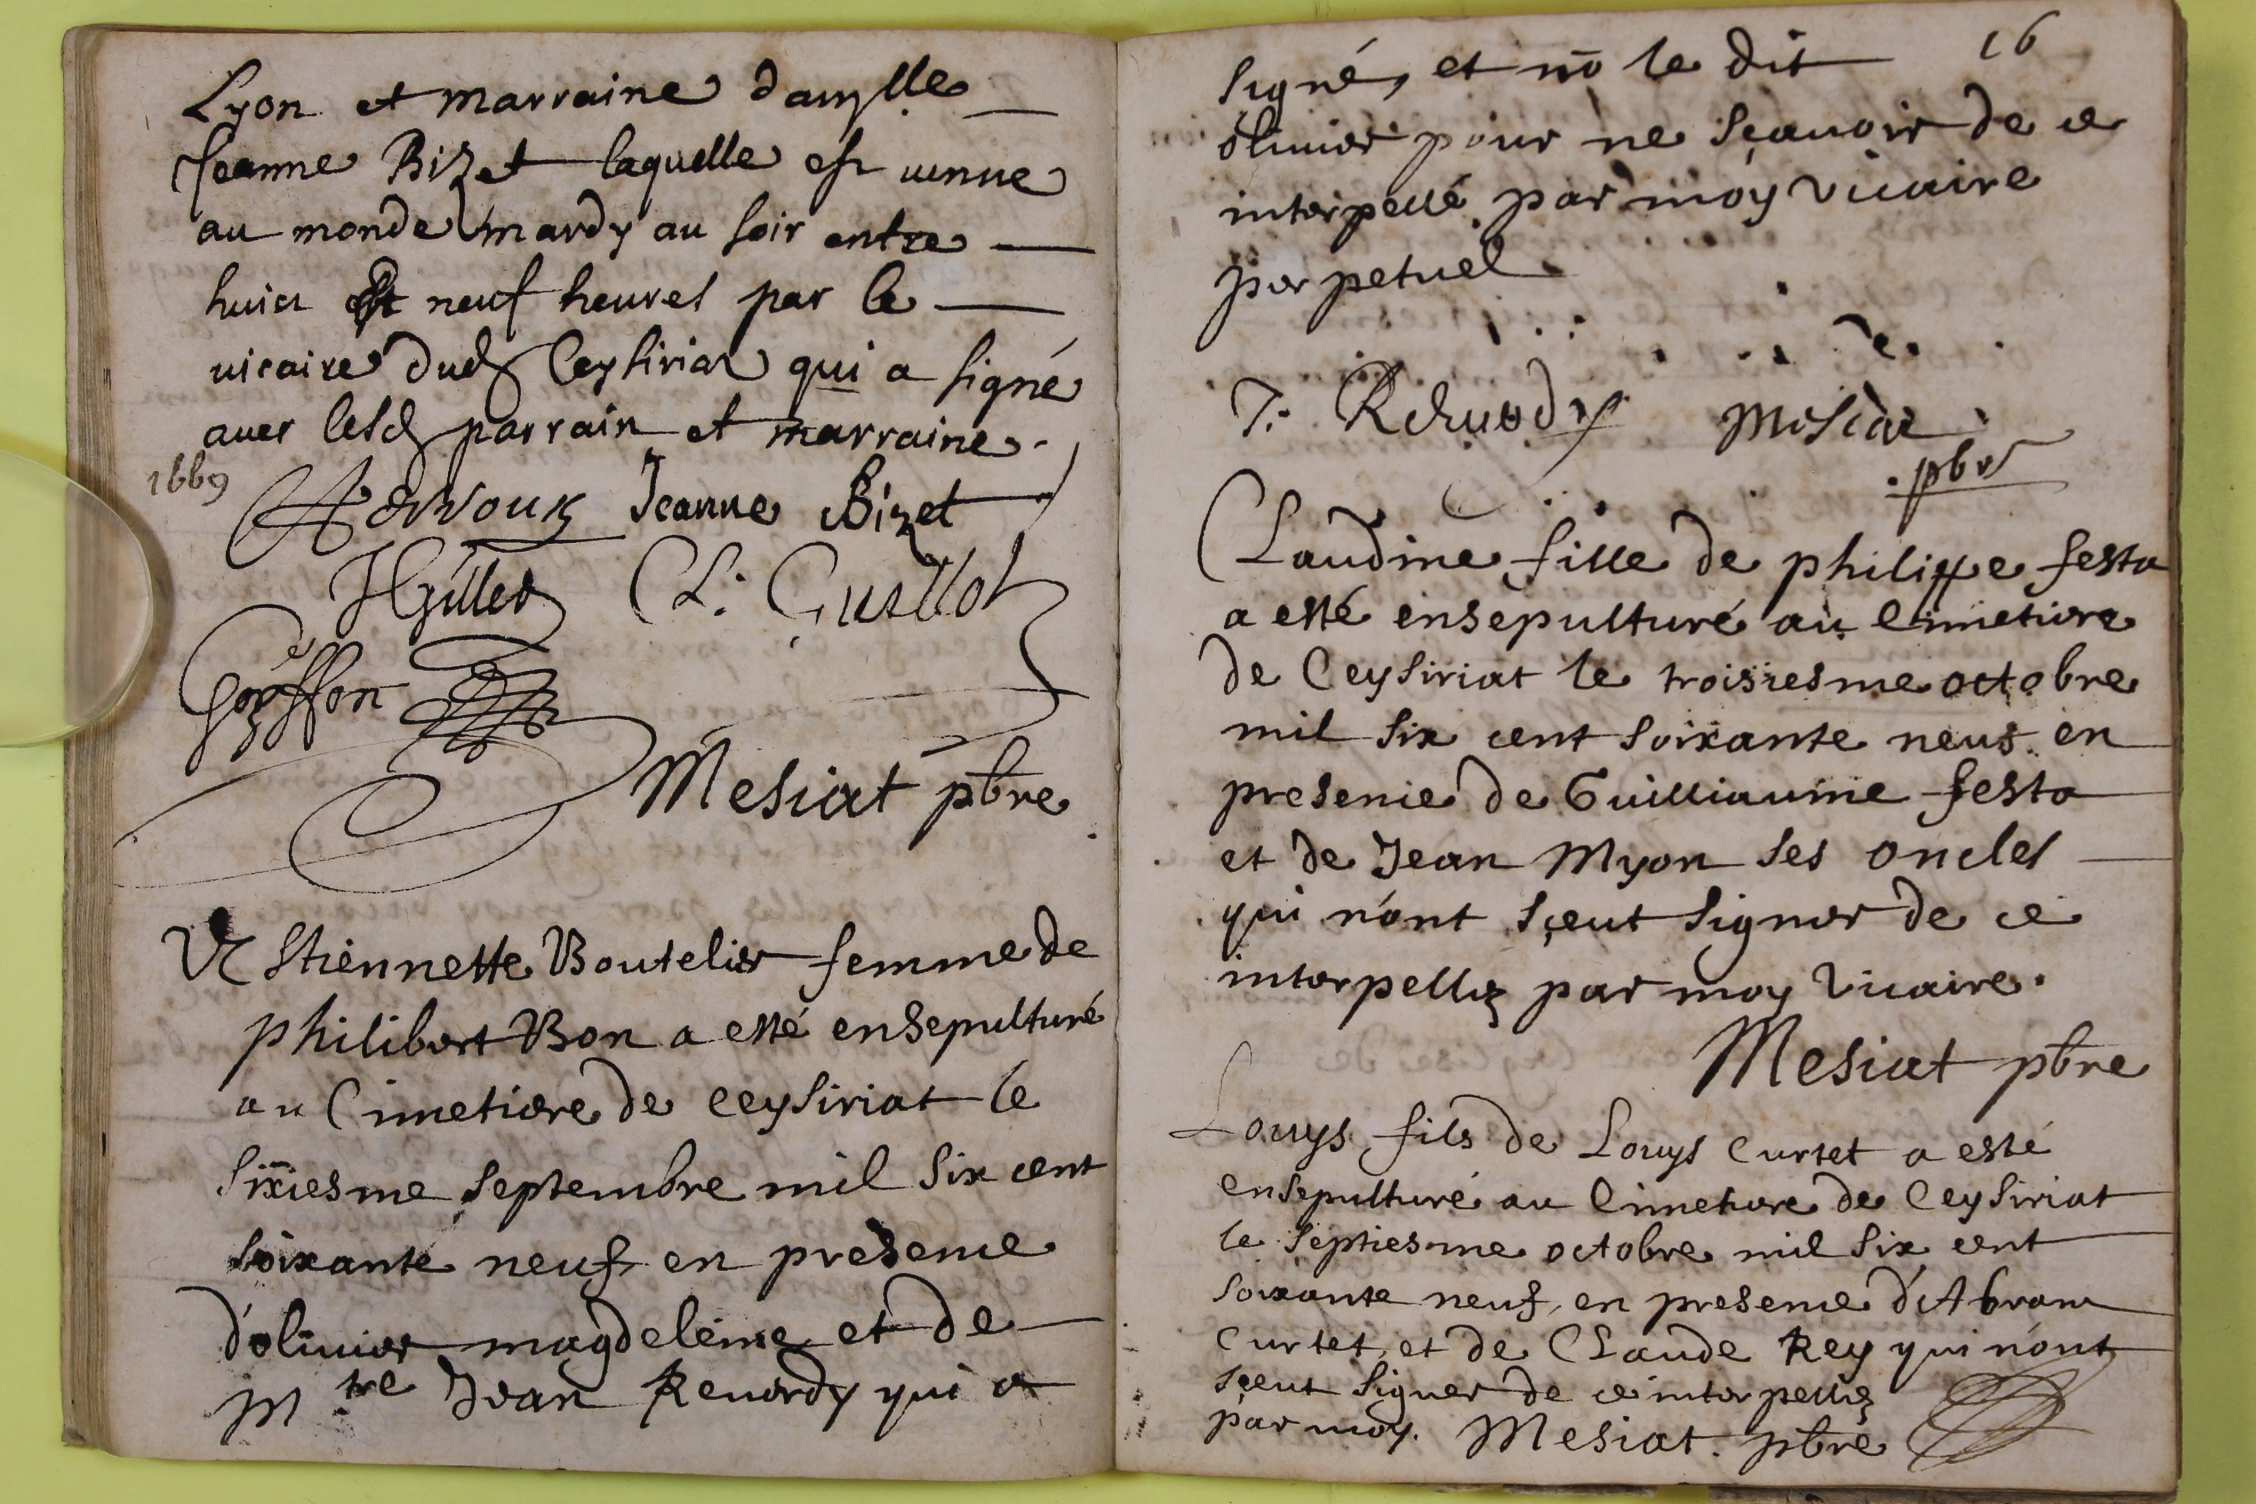 Lyon et marraine damlle
Jeanne Bizet laquelle est venue
au monde mardy au soir entre
huict et neuf heures par le
vicaire dud Ceysiriat qui a signé
avec lesd parrain et marraine.
1669
Jeanne Bizet
JGillet Cl: Guillot
Goyffon
Mesiat pbre
Estiennette Boutelier femme de
philibert Bon a esté ensepulturé
au Cimetiere de Ceysiriat le
sixiesme septembre mil six cent
soixante neuf en presence
d'olivier magdeleine et de
Mtre Jean Reverdy qui a
16
signé, et nō le dit
olivier pour ne sçavoir de ce
interpellé par moy vicaire
perpetuel
J: Reverdy Mesiat
pbre
Claudine fille de philippe festa
a esté ensepulturé au Cimetiere
de Ceysiriat le troisiesme octobre
mil six cent soixante neuf en
presence de Guilliaume festa
et de Jean Myon ses oncles
qui n'ont sçeut signer de ce
interpellez par moy Vicaire.
Mesiat pbre
Louys fils de Louys Curtet a esté
ensepulturé au Cimetiere de Ceysiriat
le septiesme octobre mil six cent
soixante neuf, en presence d'Abram
Curtet, et de Claude Rey qui n'ont
sçeut signer de ce interpellez
par moy. Mesiat. pbre